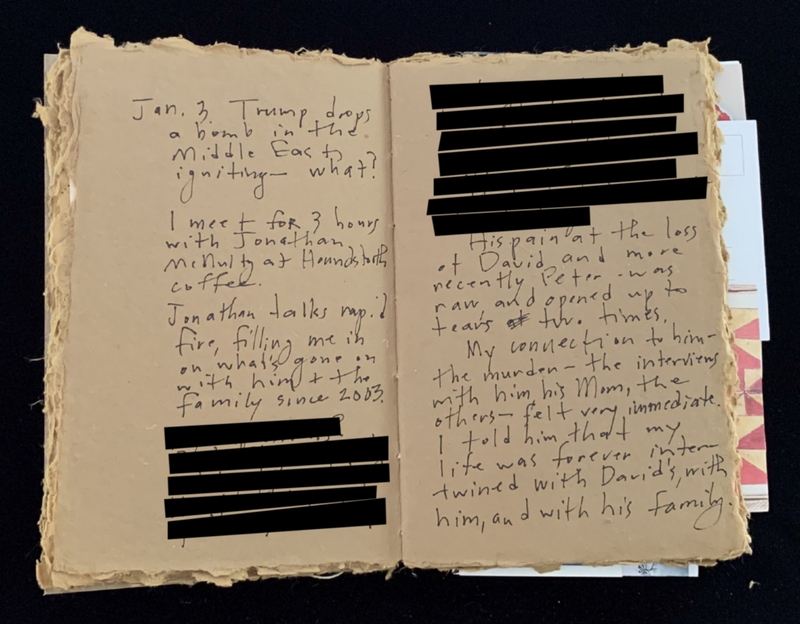 Jan. 3 Trump drops
a bomb in the
Middle East,
igniting— what?
I meet for 3 hours
with Jonathan
McNulty at Houndstooth
coffee.
Jonathan talks rapid
fire, filling me in
on what's gone on
with him + the
family since 2003.
His pain at the loss
of David and more
recently Peter - was
raw and opened up to
tears two times.
My connection to him—
the murder— the interviews
with him, his Mom, the
others— felt very immediate.
I told him that my
life was forever inter-
twined with David's, with
him, and with his family.